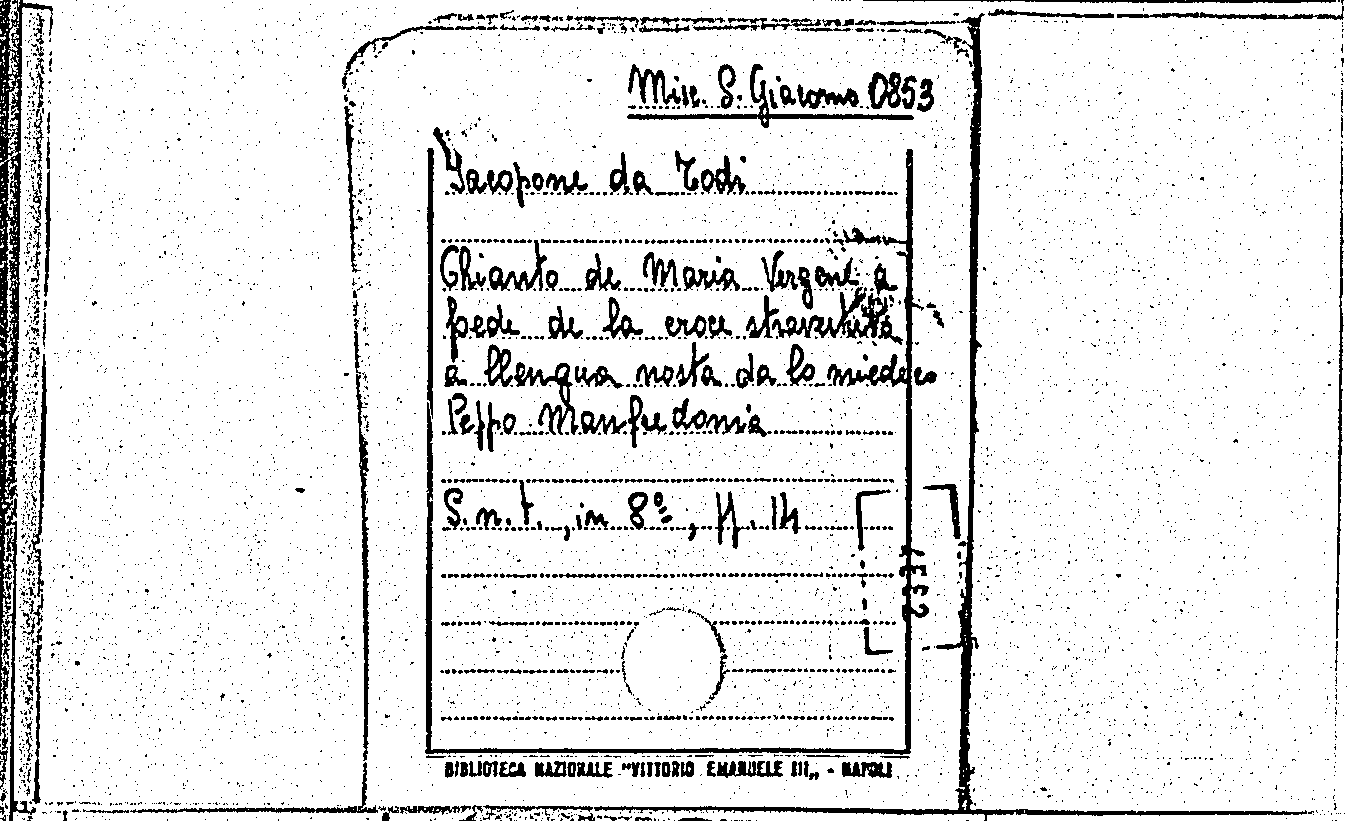 Misc. S. Giacomo 0853
Jacopone da Todi
Chianto de Maria Vergene a
pede de la croce stravestuta
a llengua nosta da lo miedeco
Peppo Manfredonia
S.n.t., in 8º, ff. 14
BIBLIOTECA NAZIONALE "VITTORIO EMANUELE III„ - NAPOLI